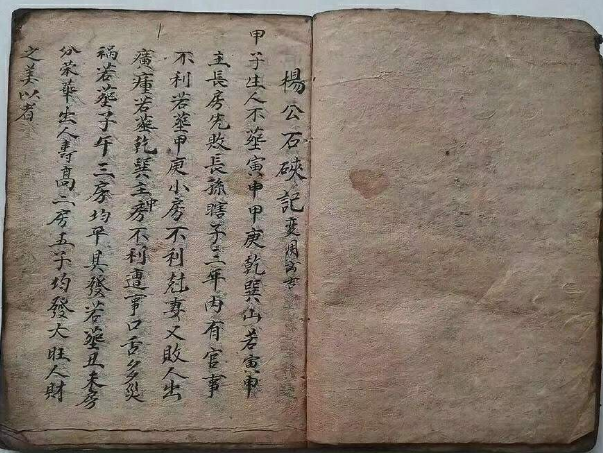 楊公石硤記
甲子生人不葬寅申甲庚乾巽山若寅申
主長房先敗長孫瞎子三年內有官事
不利若葬甲庚小房不利尅妻又敗人出
若葬乾巽主房不利遭事口舌多災
禍若葬子午三房均平具發若葬丑未房
分榮華出人壽高二房五子均發大旺人財
之美以者